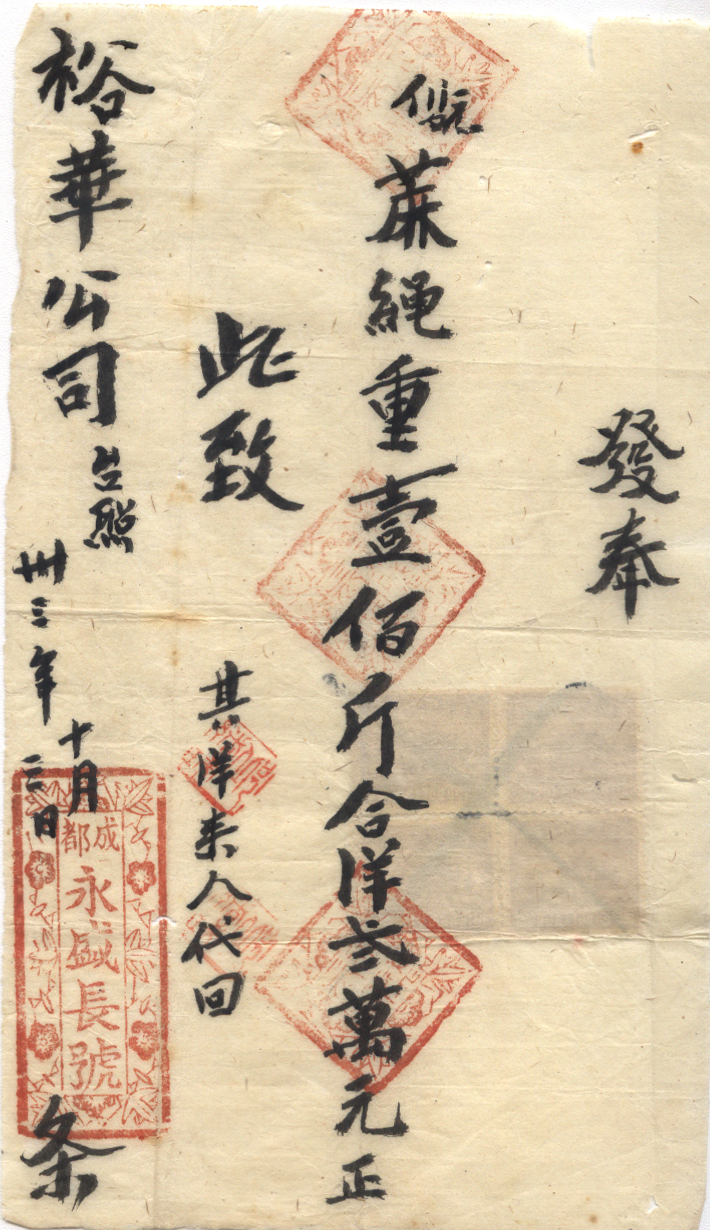 發奉
蔴繩重壹佰斤合洋弍萬元正
此致
其洋来人代回
裕華公司台照
卅三年十月三日
成都
永盛長號
条